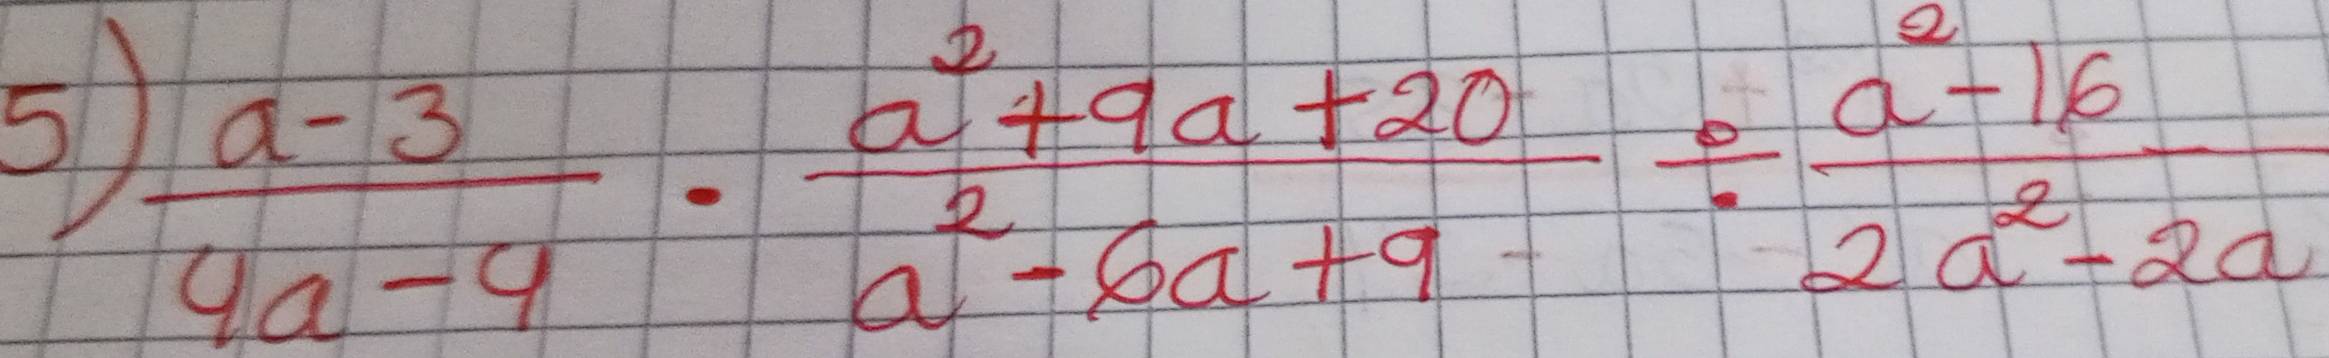 5) \frac{a-3}{4a-4} \cdot \frac{a^2+9a+20}{a^2-6a+9} \div \frac{a^2-16}{2a^2-2a}